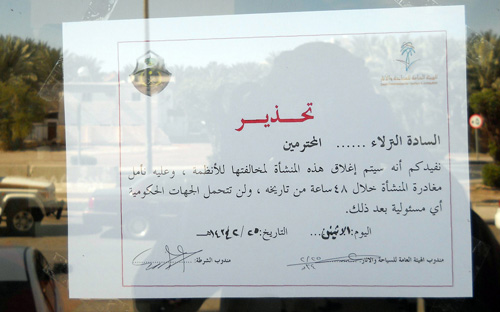 الهيئة العامة للسياحة والآثار
تحذير
السادة النزلاء ...... المحترمين
نفيدكم أنه سيتم إغلاق هذه المنشأة لمخالفتها للأنظمة ، وعليه نأمل
مغادرة المنشأة خلال ٤٨ ساعة من تاريخه ، ولن تتحمل الجهات الحكومية
أي مسئولية بعد ذلك.
اليوم: الاثنين... التاريخ: ٢٥/
مندوب الهيئة العامة للسياحة والآثار مندوب الشرطة: